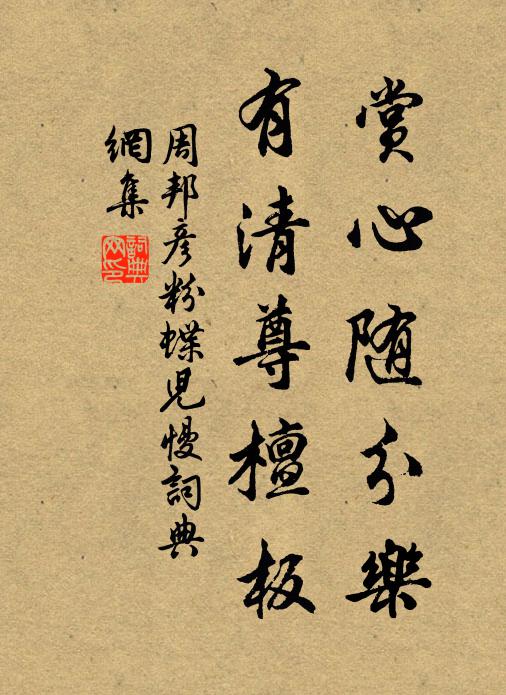 赏心随分樂
有清尊檀板
周邦彦粉蝶児慢詞典
網集
詞典
网印